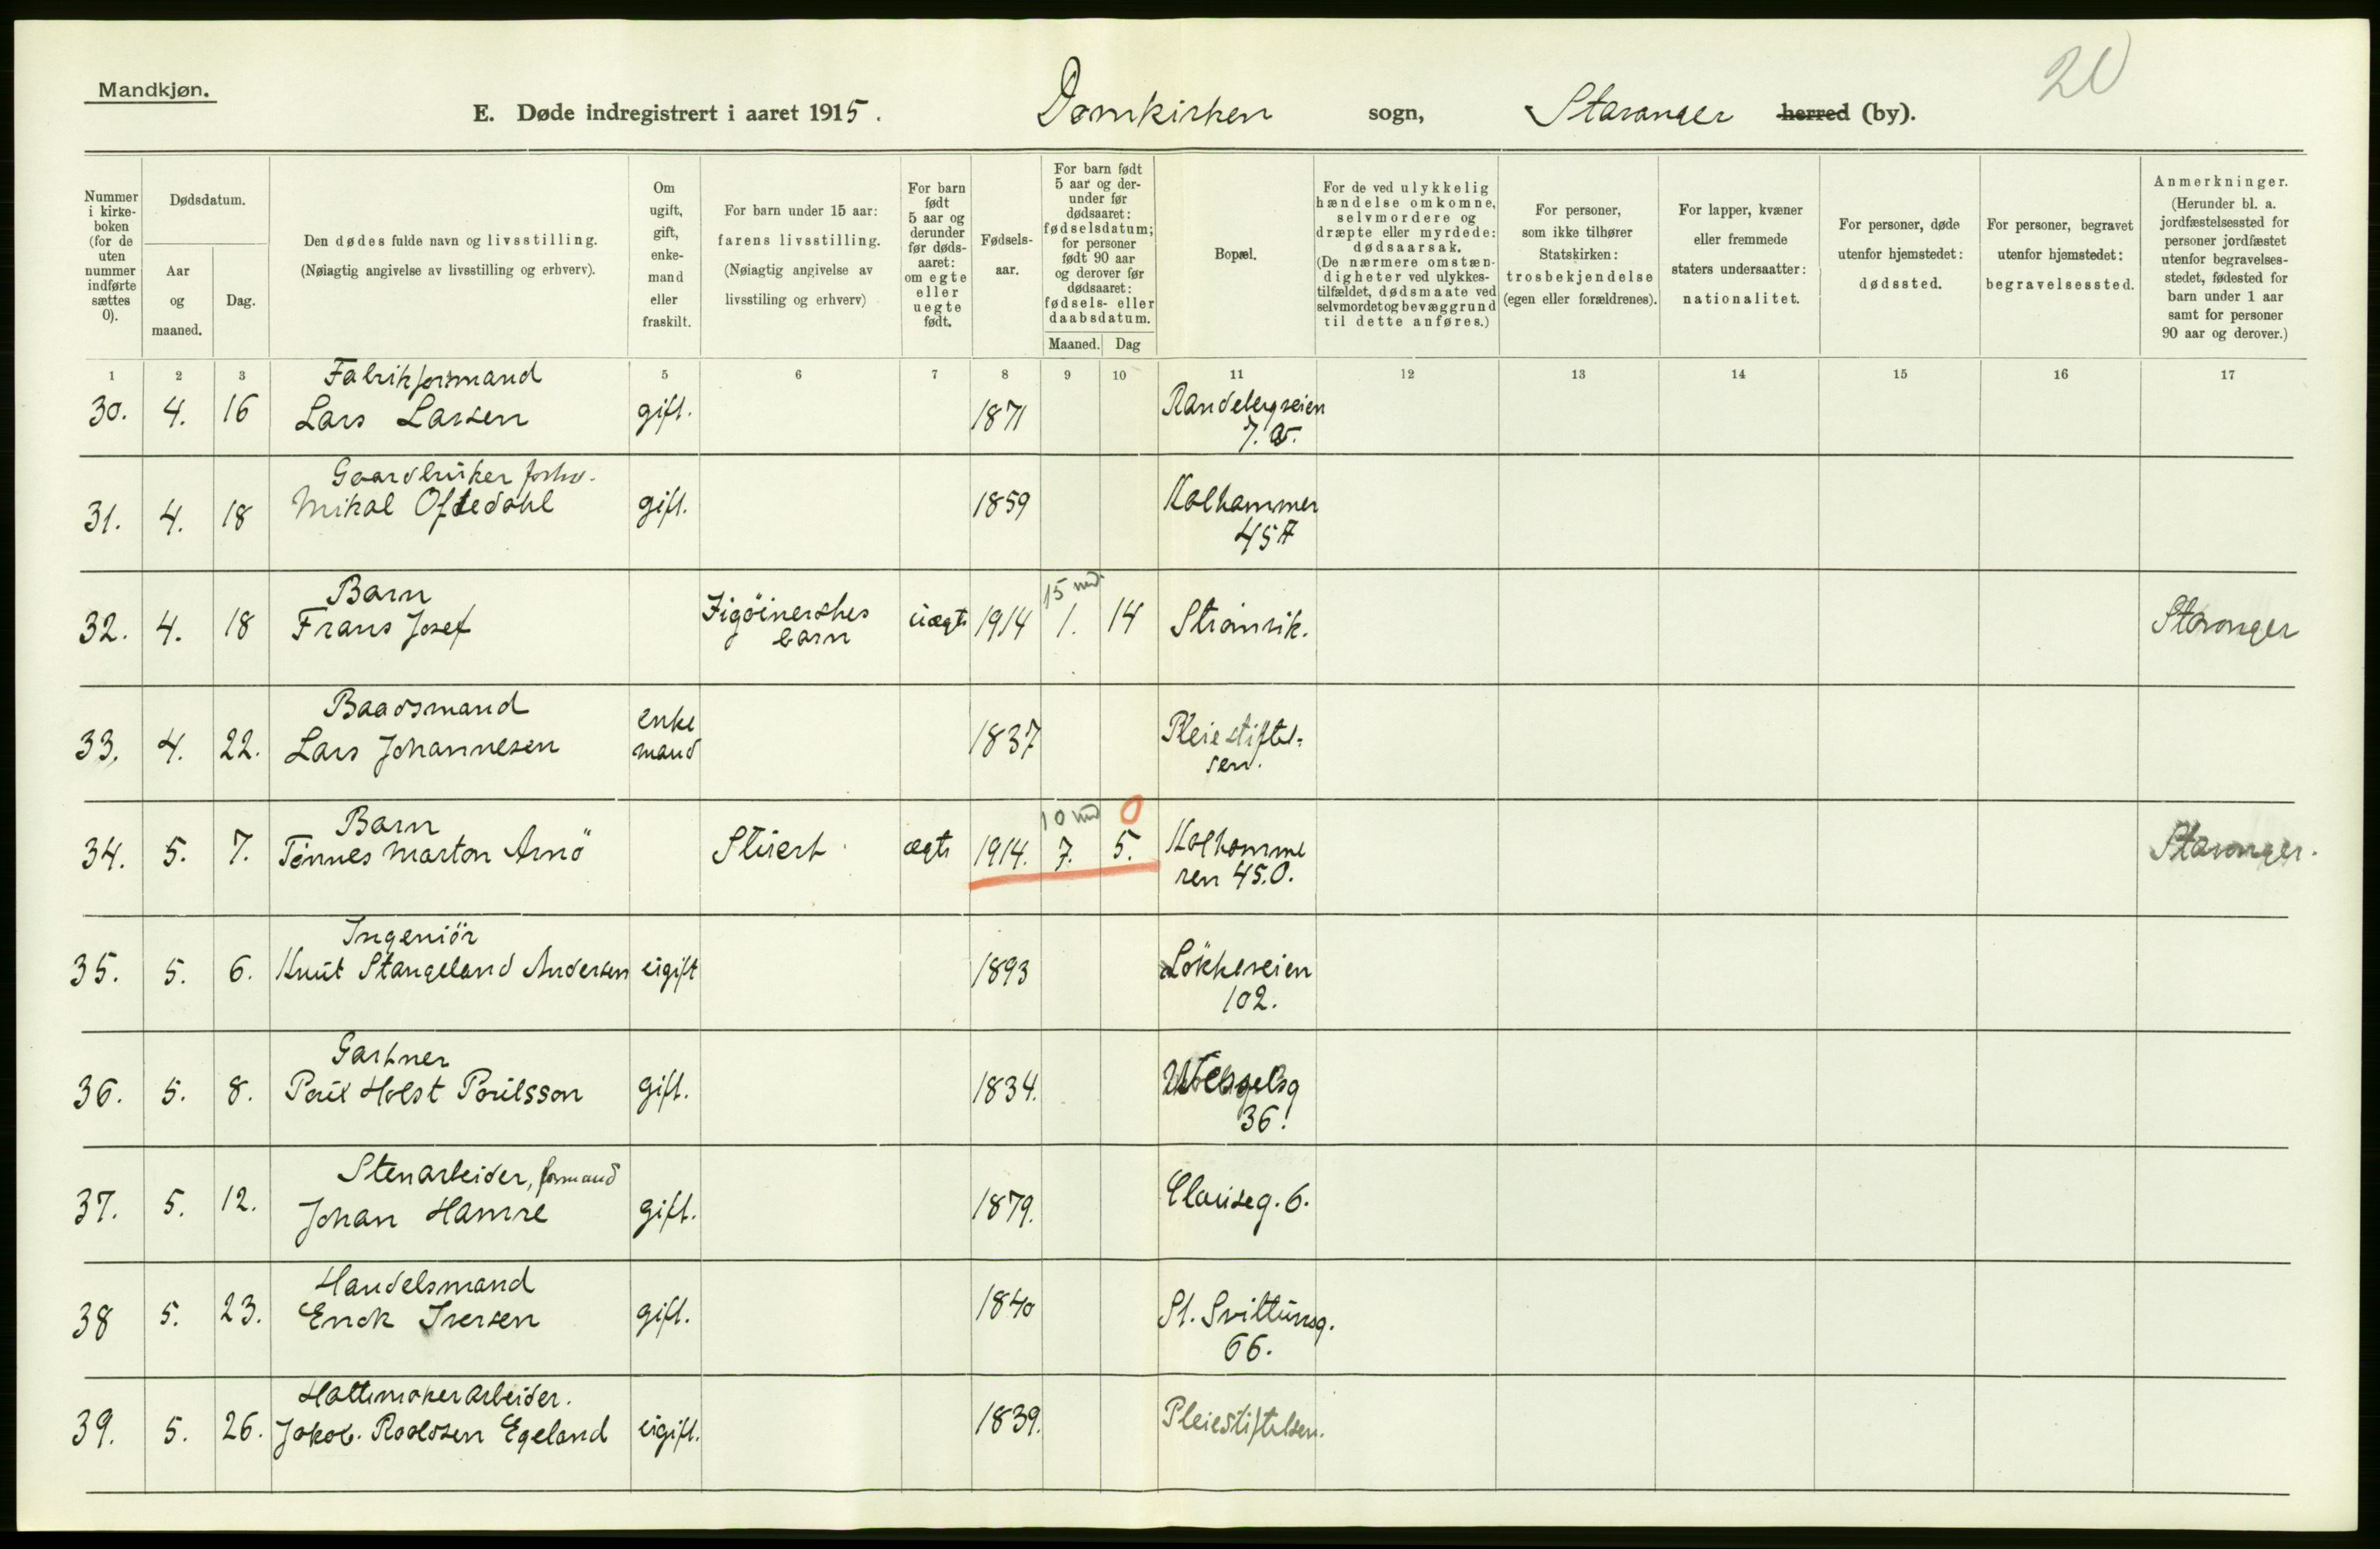 Mandkjøn.
20
E. Døde indregistrert i aaret 1915. Domkirken sogn, Stavanger herred (by).
Nummer i kirkeboken (for de uten nummer indførte sættes 0).
Dødsdatum.
Aar og maaned.
Dag.
Den dødes fulde navn og livsstilling.
(Nøiagtig angivelse av livsstilling og erhverv).
Om ugift, gift, enkemand eller fraskilt.
For barn under 15 aar: farens livsstilling.
(Nøiagtig angivelse av livsstiling og erhverv)
For barn født 5 aar og derunder før dødsaaret: om egte eller uegte født.
Fødselsaar.
For barn født 5 aar og derunder før dødsaaret: fødselsdatum; for personer født 90 aar og derover før dødsaaret: fødsels- eller daabsdatum.
Maaned. Dag
Bopæl.
For de ved ulykkelig hændelse omkomne, selvmordere og dræpte eller myrdede: dødsaarsak.
(De nærmere omstændigheter ved ulykkestilfældet, dødsmaate ved selvmordet og bevæggrund til dette anføres.)
For personer, som ikke tilhører Statskirken: trosbekjendelse (egen eller forældrenes).
For lapper, kvæner eller fremmede staters undersaatter: nationalitet.
For personer, døde utenfor hjemstedet: dødssted.
For personer, begravet utenfor hjemstedet: begravelsessted.
Anmerkninger.
(Herunder bl. a. jordfæstelsessted for personer jordfæstet utenfor begravelsesstedet, fødested for barn under 1 aar samt for personer 90 aar og derover.)
1 2 3 5 6 7 8 9 10 11 12 13 14 15 16 17
Fabrikformand
30. 4. 16 Lars Larsen gift. 1871 Randebergveien
7. a.
Gaardbruker forhv.
31. 4. 18 Mikal Oftedahl gift. 1859 Kalhammer
45 A
Barn 15 md.
32. 4. 18 Frans Josef Zigöinerskes uægte 1914 1. 14 Strömvik. Stavanger
barn
Baadsmand
33. 4. 22. Lars Johannesen enke 1837 Pleiestiftel-
mand sen.
Barn 10 md 0
34. 5. 7. Tönnes Marton Arnö Stuert ægte 1914. 7. 5. Kalhamme Stavanger.
ren 45.0.
Ingeniör
35. 5. 6. Knut Stangeland Andersen ugift 1893 Lökkeveien
102.
Gartner
36. 5. 8. Poul Holst Poulsson gift. 1834.
36.
Stenarbeider, formand
37. 5. 12. Johan Hamre gift. 1879. Clauseg. 6.
Handelsmand
38 5. 23. Enok Iversen gift. 1840 St. Svittunsg.
66.
Hattemakerarbeider.
39. 5. 26. Jakob. Roaldsen Egeland ugift. 1839. Pleiestiftelsen.